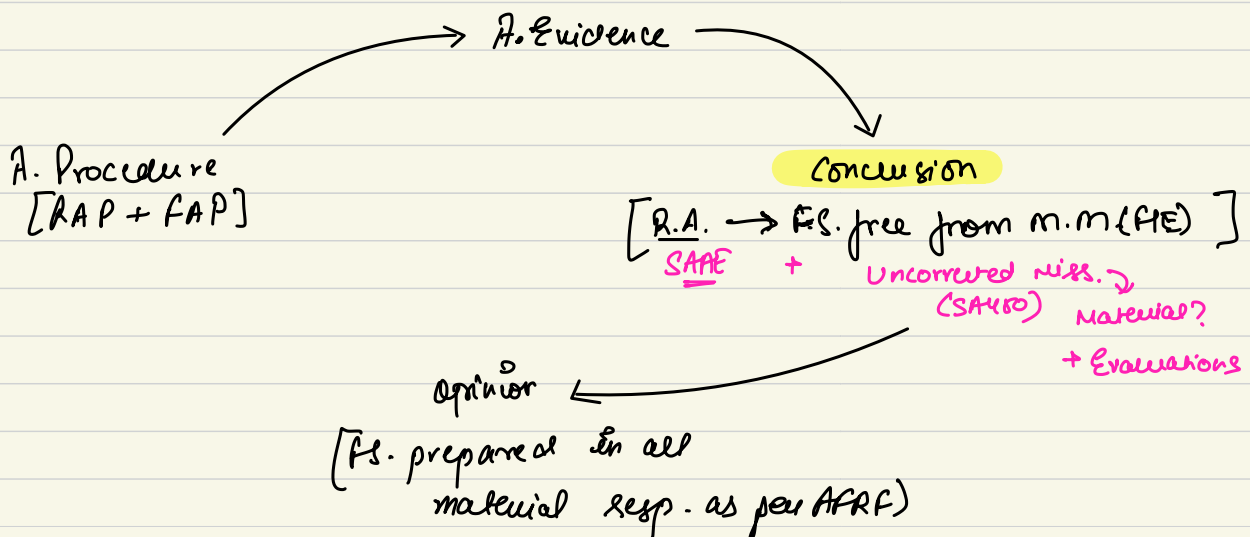 A. Evidence
A. Procedure
[RAP + FAP]
Conclusion
[R.A. → F.S. free from M.M (F/E) ]
SAAE + Uncorrected Miss.
(SA450) Material?
+ Evaluations
Opinion
[FS. prepared in all
material resp. as per AFRF)